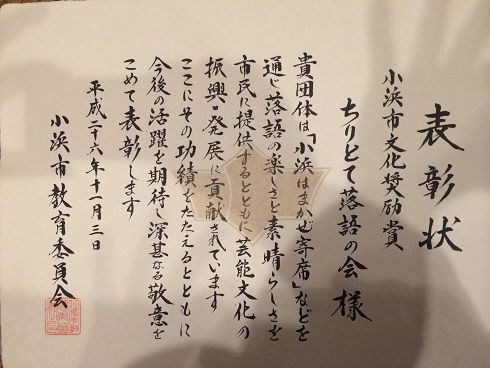 表彰状
小浜市文化奨励賞
ちりとて落語の会 様
貴団体は「小浜はまかぜ寄席」などを
通じ落語の楽しさと素晴らしさを
市民に提供するとともに芸能文化の
振興・発展に貢献されています
ここにその功績をたたえるとともに
今後の活躍を期待し深甚なる敬意を
こめて表彰します
平成二十六年十一月三日
小浜市教育委員会